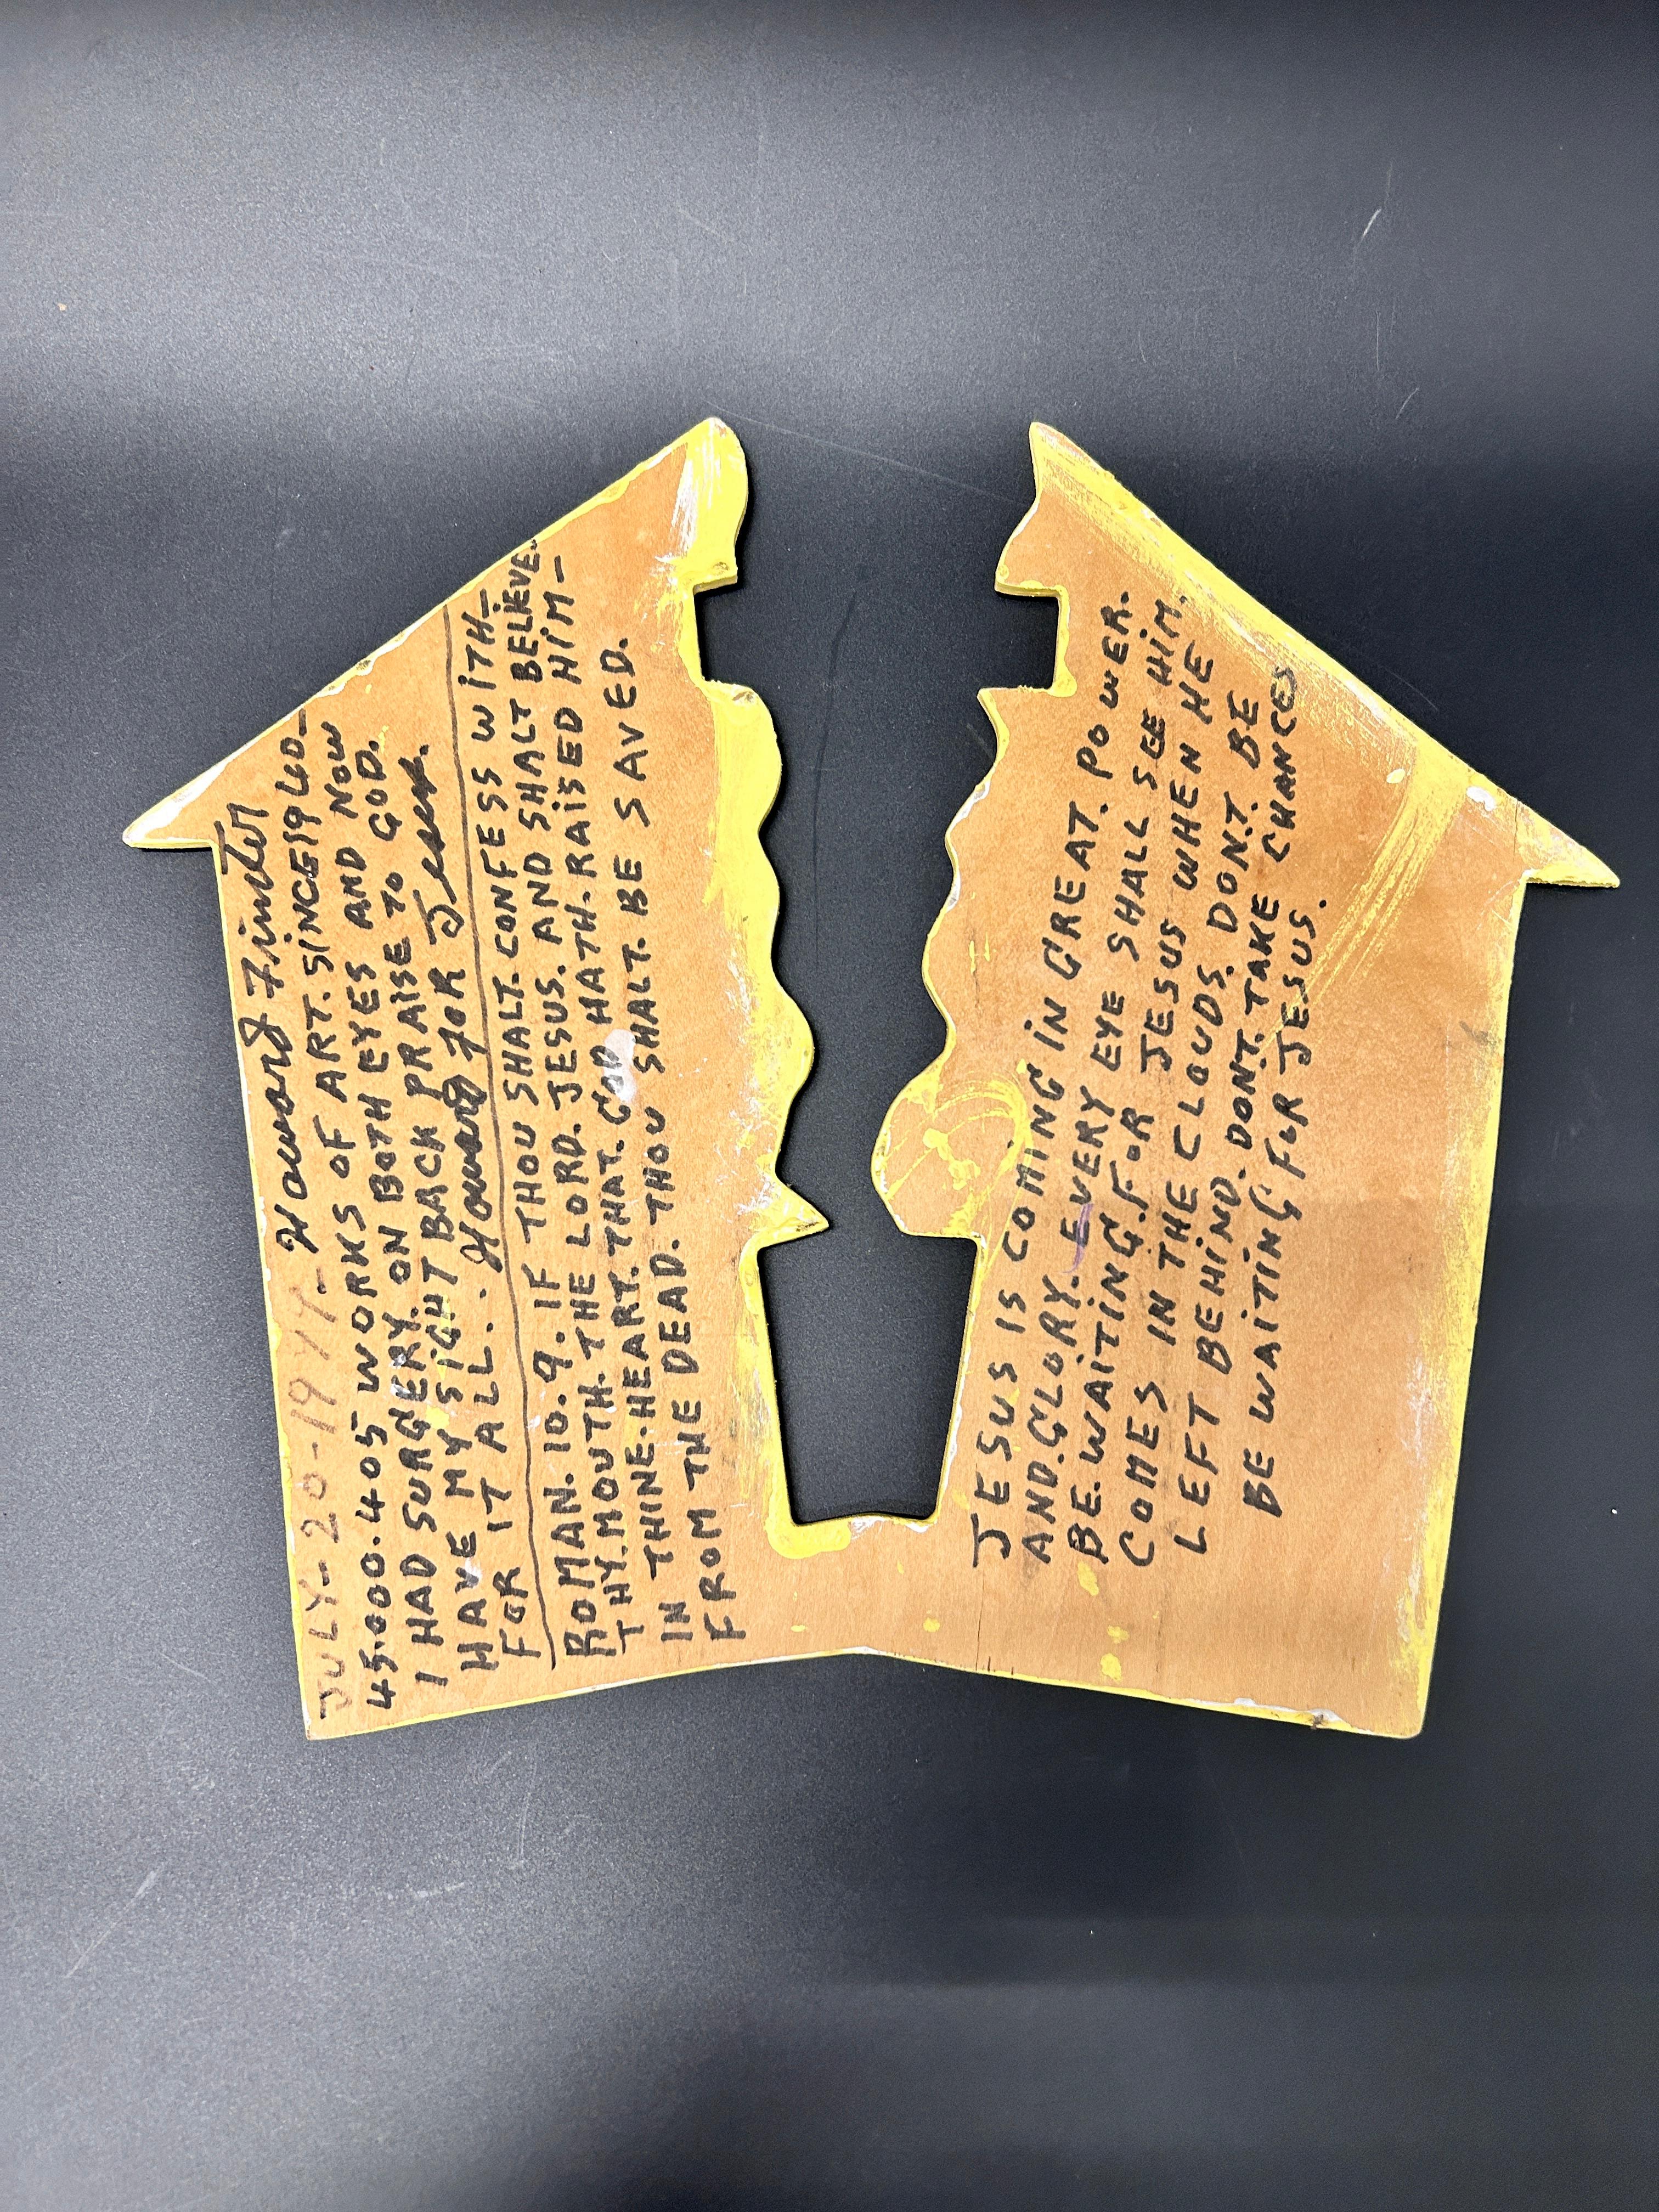 JULY-20-1999- Howard Finster
45.000.405 WORKS OF ART. SINCE 1960-
I HAD SURGERY. ON BOTH EYES AND NOW
HAVE MY SIGHT BACK PRAISE TO GOD.
FOR IT ALL. . Howard FOR Jesus.
ROMAN. 10. 9. IF THOU SHALT. CONFESS WITH-
THY. MOUTH. THE LORD. JESUS. AND SHALT BELIEVE.
IN THINE. HEART. THAT. GOD HATH. RAISED HIM-
FROM THE DEAD. THOU SHALT. BE SAVED.
JESUS IS COMING IN GREAT. POWER.
AND. GLORY. EVERY EYE SHALL SEE HIM.
BE. WAITING. FOR JESUS WHEN HE
COMES IN THE CLOUDS. DONT. BE
LEFT BEHIND. DONT. TAKE CHANCES
BE WAITING FOR JESUS.